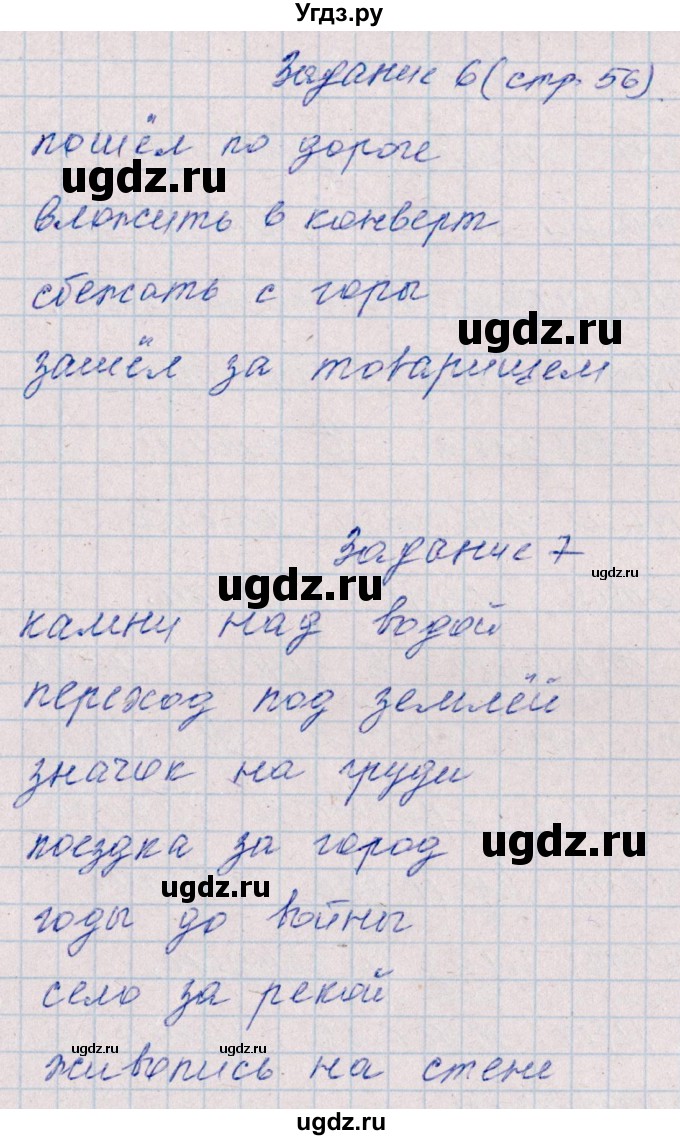 Угдз.ру
Задание 6 (стр. 56)
пошёл по дороге
ugdz.ru
вложить в конверт
сбежать с горы
ugdz.ru
зашёл за товарищем
Задание 7
ugdz.ru
ugdz.ru
камни над водой
переход под землёй
значок на груди
ugdz.ru
поездка за город
ugdz.ru
годы до войны
село за рекой
ugdz.ru
ugdz.ru
живопись на стене
ugdz.ru